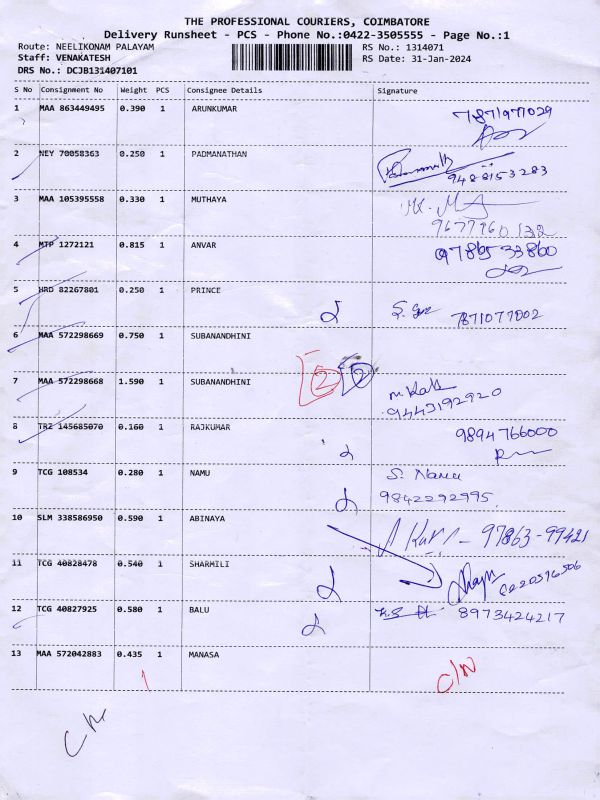 THE PROFESSIONAL COURIERS, COIMBATORE
Delivery Runsheet - PCS - Phone No.:0422-3505555 - Page No.:1
Route: NEELIKONAM PALAYAM RS No.: 1314071
Staff: VENAKATESH RS Date: 31-Jan-2024
DRS No.: DCJB131407101
S No Consignment No Weight PCS Consignee Details Signature
1 MAA 863449495 0.390 1 ARUNKUMAR
2 NEY 70058363 0.250 1 PADMANATHAN
9488153283
3 MAA 105395558 0.330 1 MUTHAYA
9677760132
4 MTP 1272121 0.815 1 ANVAR 9786533860
5 HRD 82267801 0.250 1 PRINCE
7871077002
6 MAA 572298669 0.750 1 SUBANANDHINI
2 2
7 MAA 572298668 1.590 1 SUBANANDHINI
9443192920
8 TRZ 145685070 0.160 1 RAJKUMAR 9894766000
9 TCG 108534 0.280 1 NAMU S. Namu
9842292995
10 SLM 338586950 0.590 1 ABINAYA 97863-99421
11 TCG 40828478 0.540 1 SHARMILI
12 TCG 40827925 0.580 1 BALU 8973424217
13 MAA 572042883 0.435 1 MANASA
1 C/N